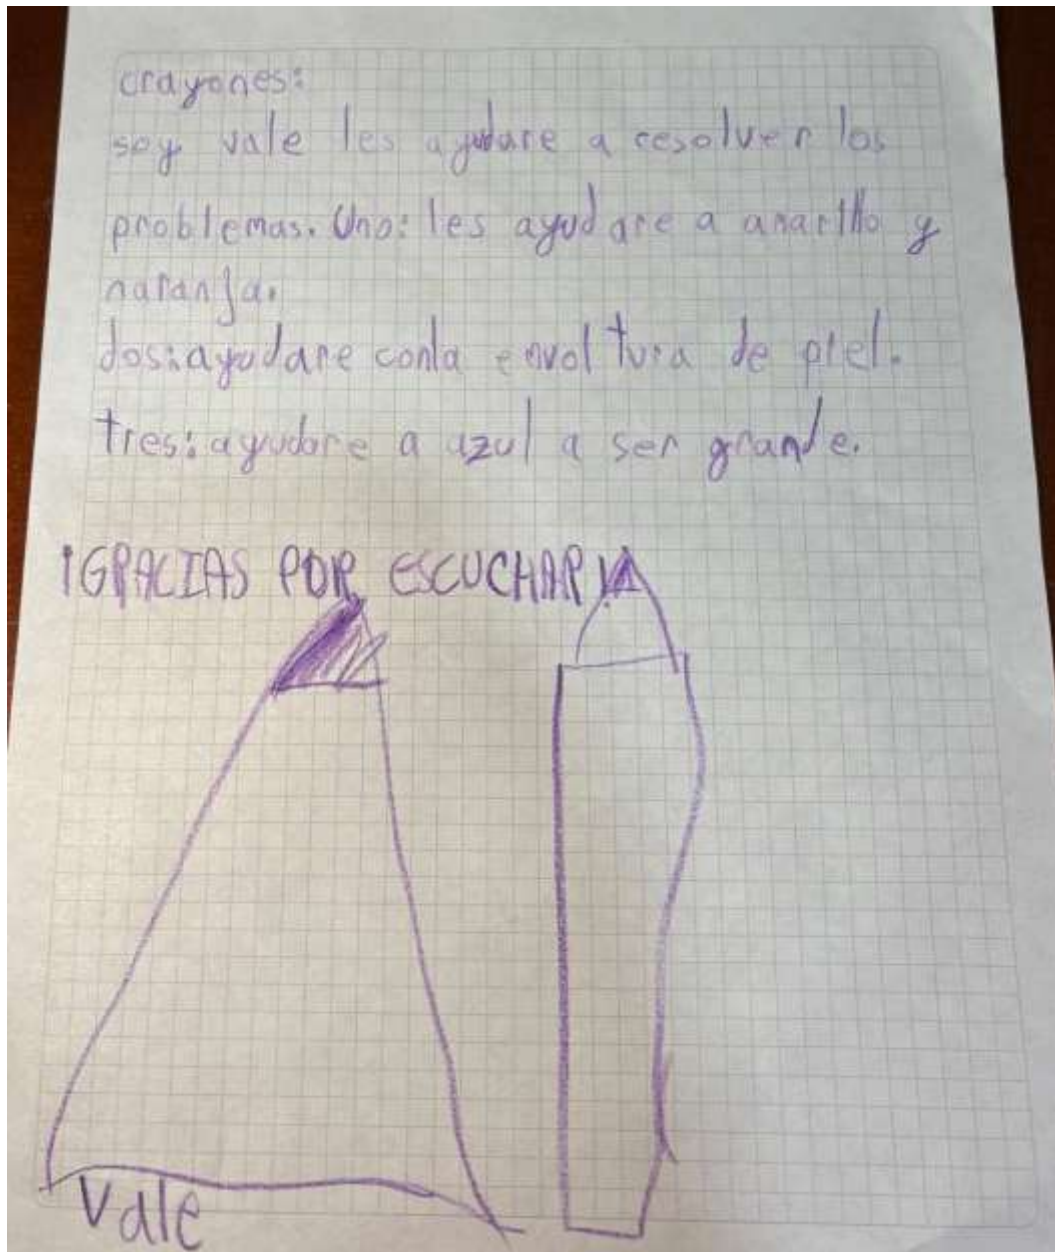 crayones:
soy vale les ayudare a resolver los
problemas. Uno: les ayudare a amarillo y
naranja.
dos: ayudare conla envoltura de piel.
tres: ayudare a azul a ser grande.
¡GRACIAS POR ESCUCHAR!
Vale